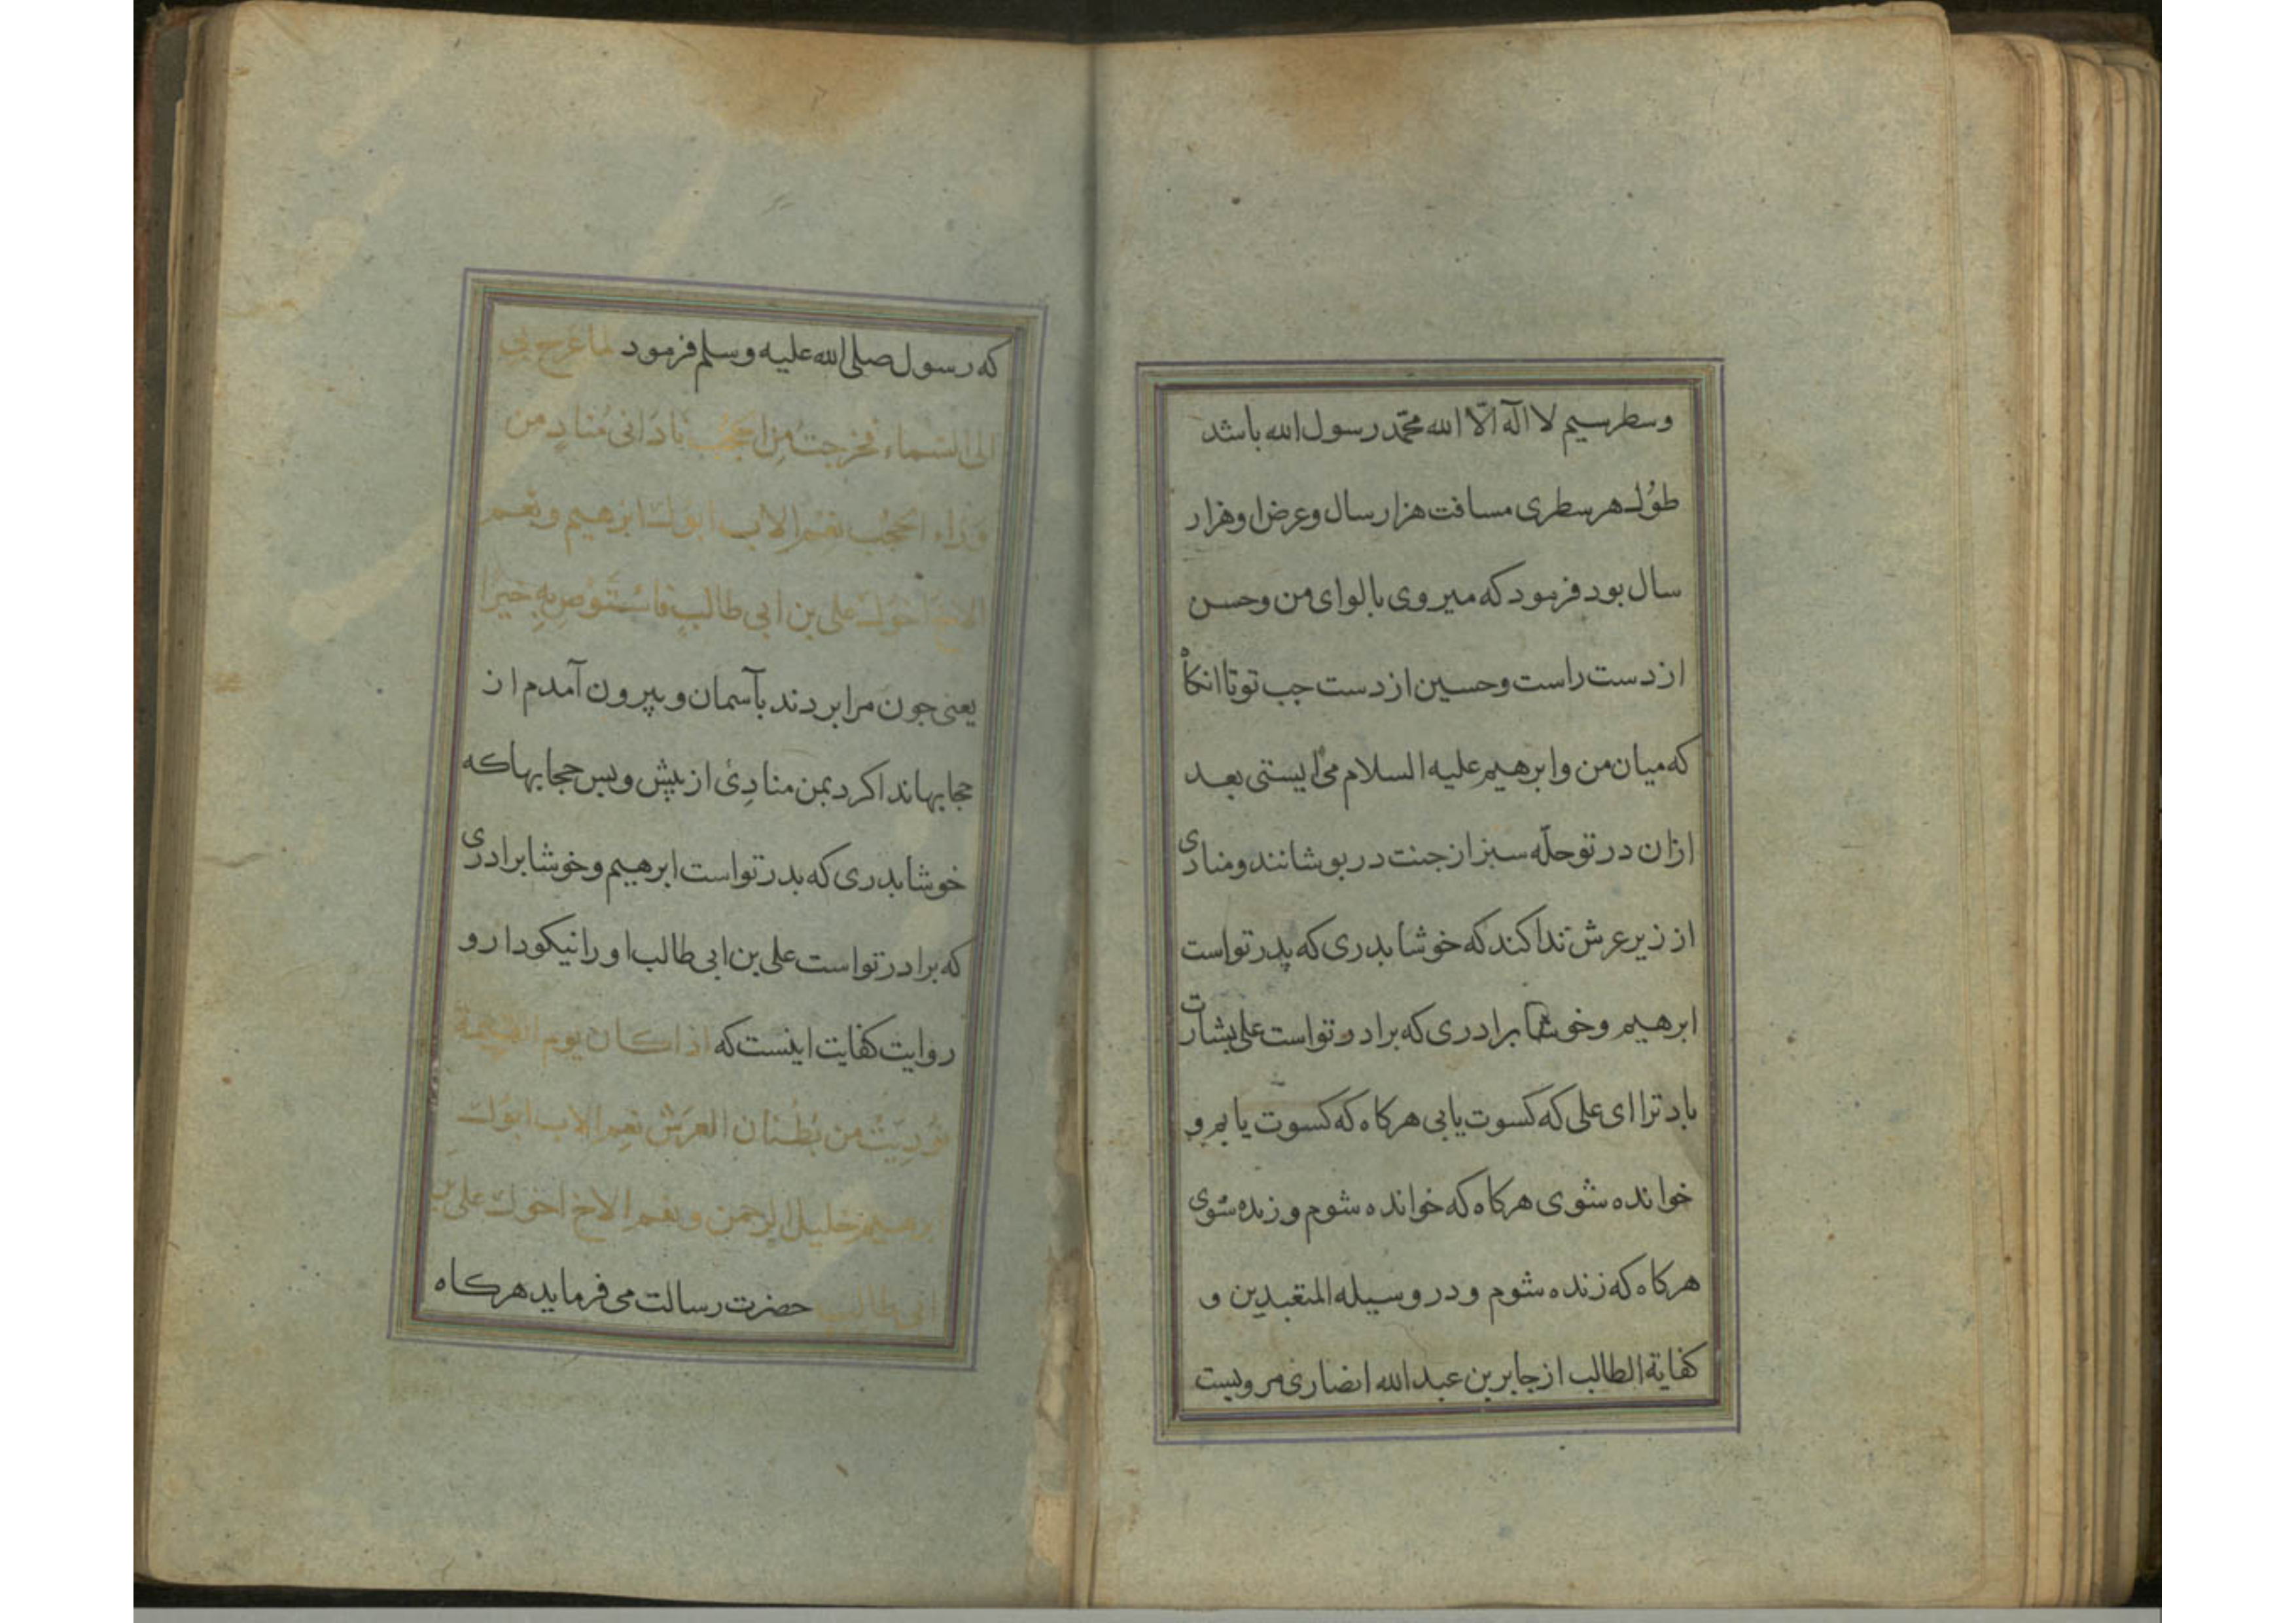 وسطر سیم لا اله الّا الله محمّد رسول الله باشد
طول هر سطری مسافت هزار سال و عرض او هزار
سال بود فرمود که میروی با لوای من وحسن
از دست راست وحسین از دست جب تو تا انکاه
که میان من و ابرهیم علیه السلام می ایستی بعد
ازان در تو حلّه سبز از جنت در بوشانند و منادی
از زیر عرش ندا کند که خوشا بدری که پدر تو است
ابرهیم و خوشا برادری که برادر تو است علی بشارت
باد ترا ای علی که کسوت یابی هرکاه که کسوت یابم و
خوانده شوی هرکاه که خوانده شوم و زنده شوی
هرکاه که زنده شوم و در وسیله المتعبدین و
کفایة الطالب از جابر بن عبد الله انصاری مرویست
که رسول صلی الله علیه وسلم فرمود لما عرج بی
الی السّماء فخرجت من الحجُب نادانی مُنادٍ من
وراء الحجُب نعم الاب ابوك ابرهیم ونعم
الاخ اخوك علی بن ابی طالب فاستَوصِ بهِ خیرًا
یعنی جون مرا بردند بآسمان و بیرون آمدم از
حجابها ندا کرد بمن منادِئ از بیش و بس حجابها که
خوشا بدری که بدر تو است ابرهیم و خوشا برادری
که برادر تو است علی بن ابی طالب او را نیکو دار و
روایت کفایت اینست که اذا کان یوم القیٰمة
نُودِیتُ من بُطنان العرش نعم الاب ابوك
ابرهیم خلیل الرحمن ونعم الاخ اخوك علی بن
ابی طالب حضرت رسالت می فرماید هرکاه